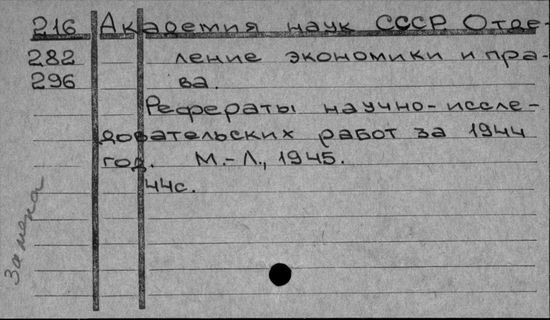 216 Академия наук СССР Отде-
282 ление экономики и пра-
296 ва.
Рефераты научно-иссле-
довательских работ за 1944
год. М.-Л., 1945.
44с.
Замена